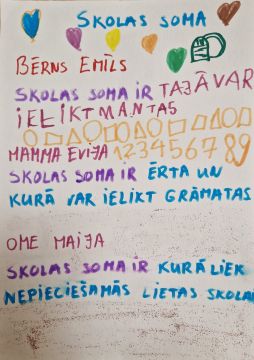 SKOLAS SOMA
BĒRNS EMĪLS
SKOLAS SOMA IR TAJĀ VAR
IELIKT MANTAS
MAMMA EVIJA 123456789
SKOLAS SOMA IR ĒRTA UN
KURĀ VAR IELIKT GRĀMATAS
OME MAIJA
SKOLAS SOMA IR KURĀ LIEK
NEPIECIEŠAMĀS LIETAS SKOLAI